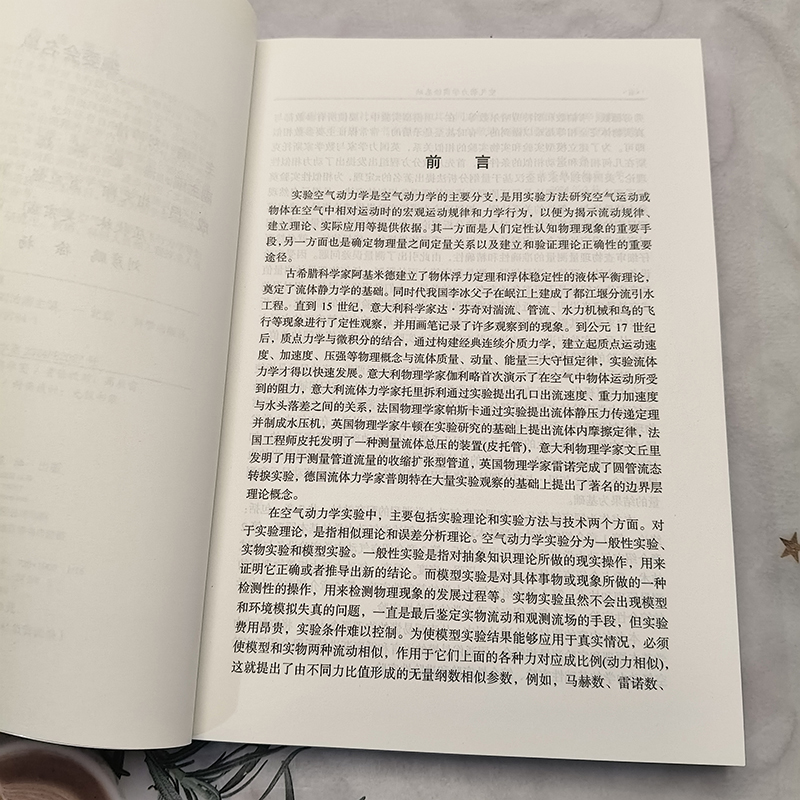 前 言
实验空气动力学是空气动力学的主要分支，是用实验方法研究空气运动或
物体在空气中相对运动时的宏观运动规律和力学行为，以便为揭示流动规律、
建立理论、实际应用等提供依据。其一方面是人们定性认知物理现象的重要手
段，另一方面也是确定物理量之间定量关系以及建立和验证理论正确性的重要
途径。
古希腊科学家阿基米德建立了物体浮力定理和浮体稳定性的液体平衡理论，
奠定了流体静力学的基础。同时代我国李冰父子在岷江上建成了都江堰分流引水
工程。直到 15 世纪，意大利科学家达·芬奇对湍流、管流、水力机械和鸟的飞
行等现象进行了定性观察，并用画笔记录了许多观察到的现象。到公元 17 世纪
后，质点力学与微积分的结合，通过构建经典连续介质力学，建立起质点运动速
度、加速度、压强等物理概念与流体质量、动量、能量三大守恒定律，实验流体
力学才得以快速发展。意大利物理学家伽利略首次演示了在空气中物体运动所受
到的阻力，意大利流体力学家托里拆利通过实验提出孔口出流速度、重力加速度
与水头落差之间的关系，法国物理学家帕斯卡通过实验提出流体静压力传递定理
并制成水压机，英国物理学家牛顿在实验研究的基础上提出流体内摩擦定律，法
国工程师皮托发明了一种测量流体总压的装置(皮托管)，意大利物理学家文丘里
发明了用于测量管道流量的收缩扩张型管道，英国物理学家雷诺完成了圆管流态
转捩实验，德国流体力学家普朗特在大量实验观察的基础上提出了著名的边界层
理论概念。
在空气动力学实验中，主要包括实验理论和实验方法与技术两个方面。对
于实验理论，是指相似理论和误差分析理论。空气动力学实验分为一般性实验、
实物实验和模型实验。一般性实验是指对抽象知识理论所做的现实操作，用来
证明它正确或者推导出新的结论。而模型实验是对具体事物或现象所做的一种
检测性的操作，用来检测物理现象的发展过程等。实物实验虽然不会出现模型
和环境模拟失真的问题，一直是最后鉴定实物流动和观测流场的手段，但实验
费用昂贵，实验条件难以控制。为使模型实验结果能够应用于真实情况，必须
使模型和实物两种流动相似，作用于它们上面的各种力对应成比例(动力相似)，
这就提出了由不同力比值形成的无量纲数相似参数，例如，马赫数、雷诺数、